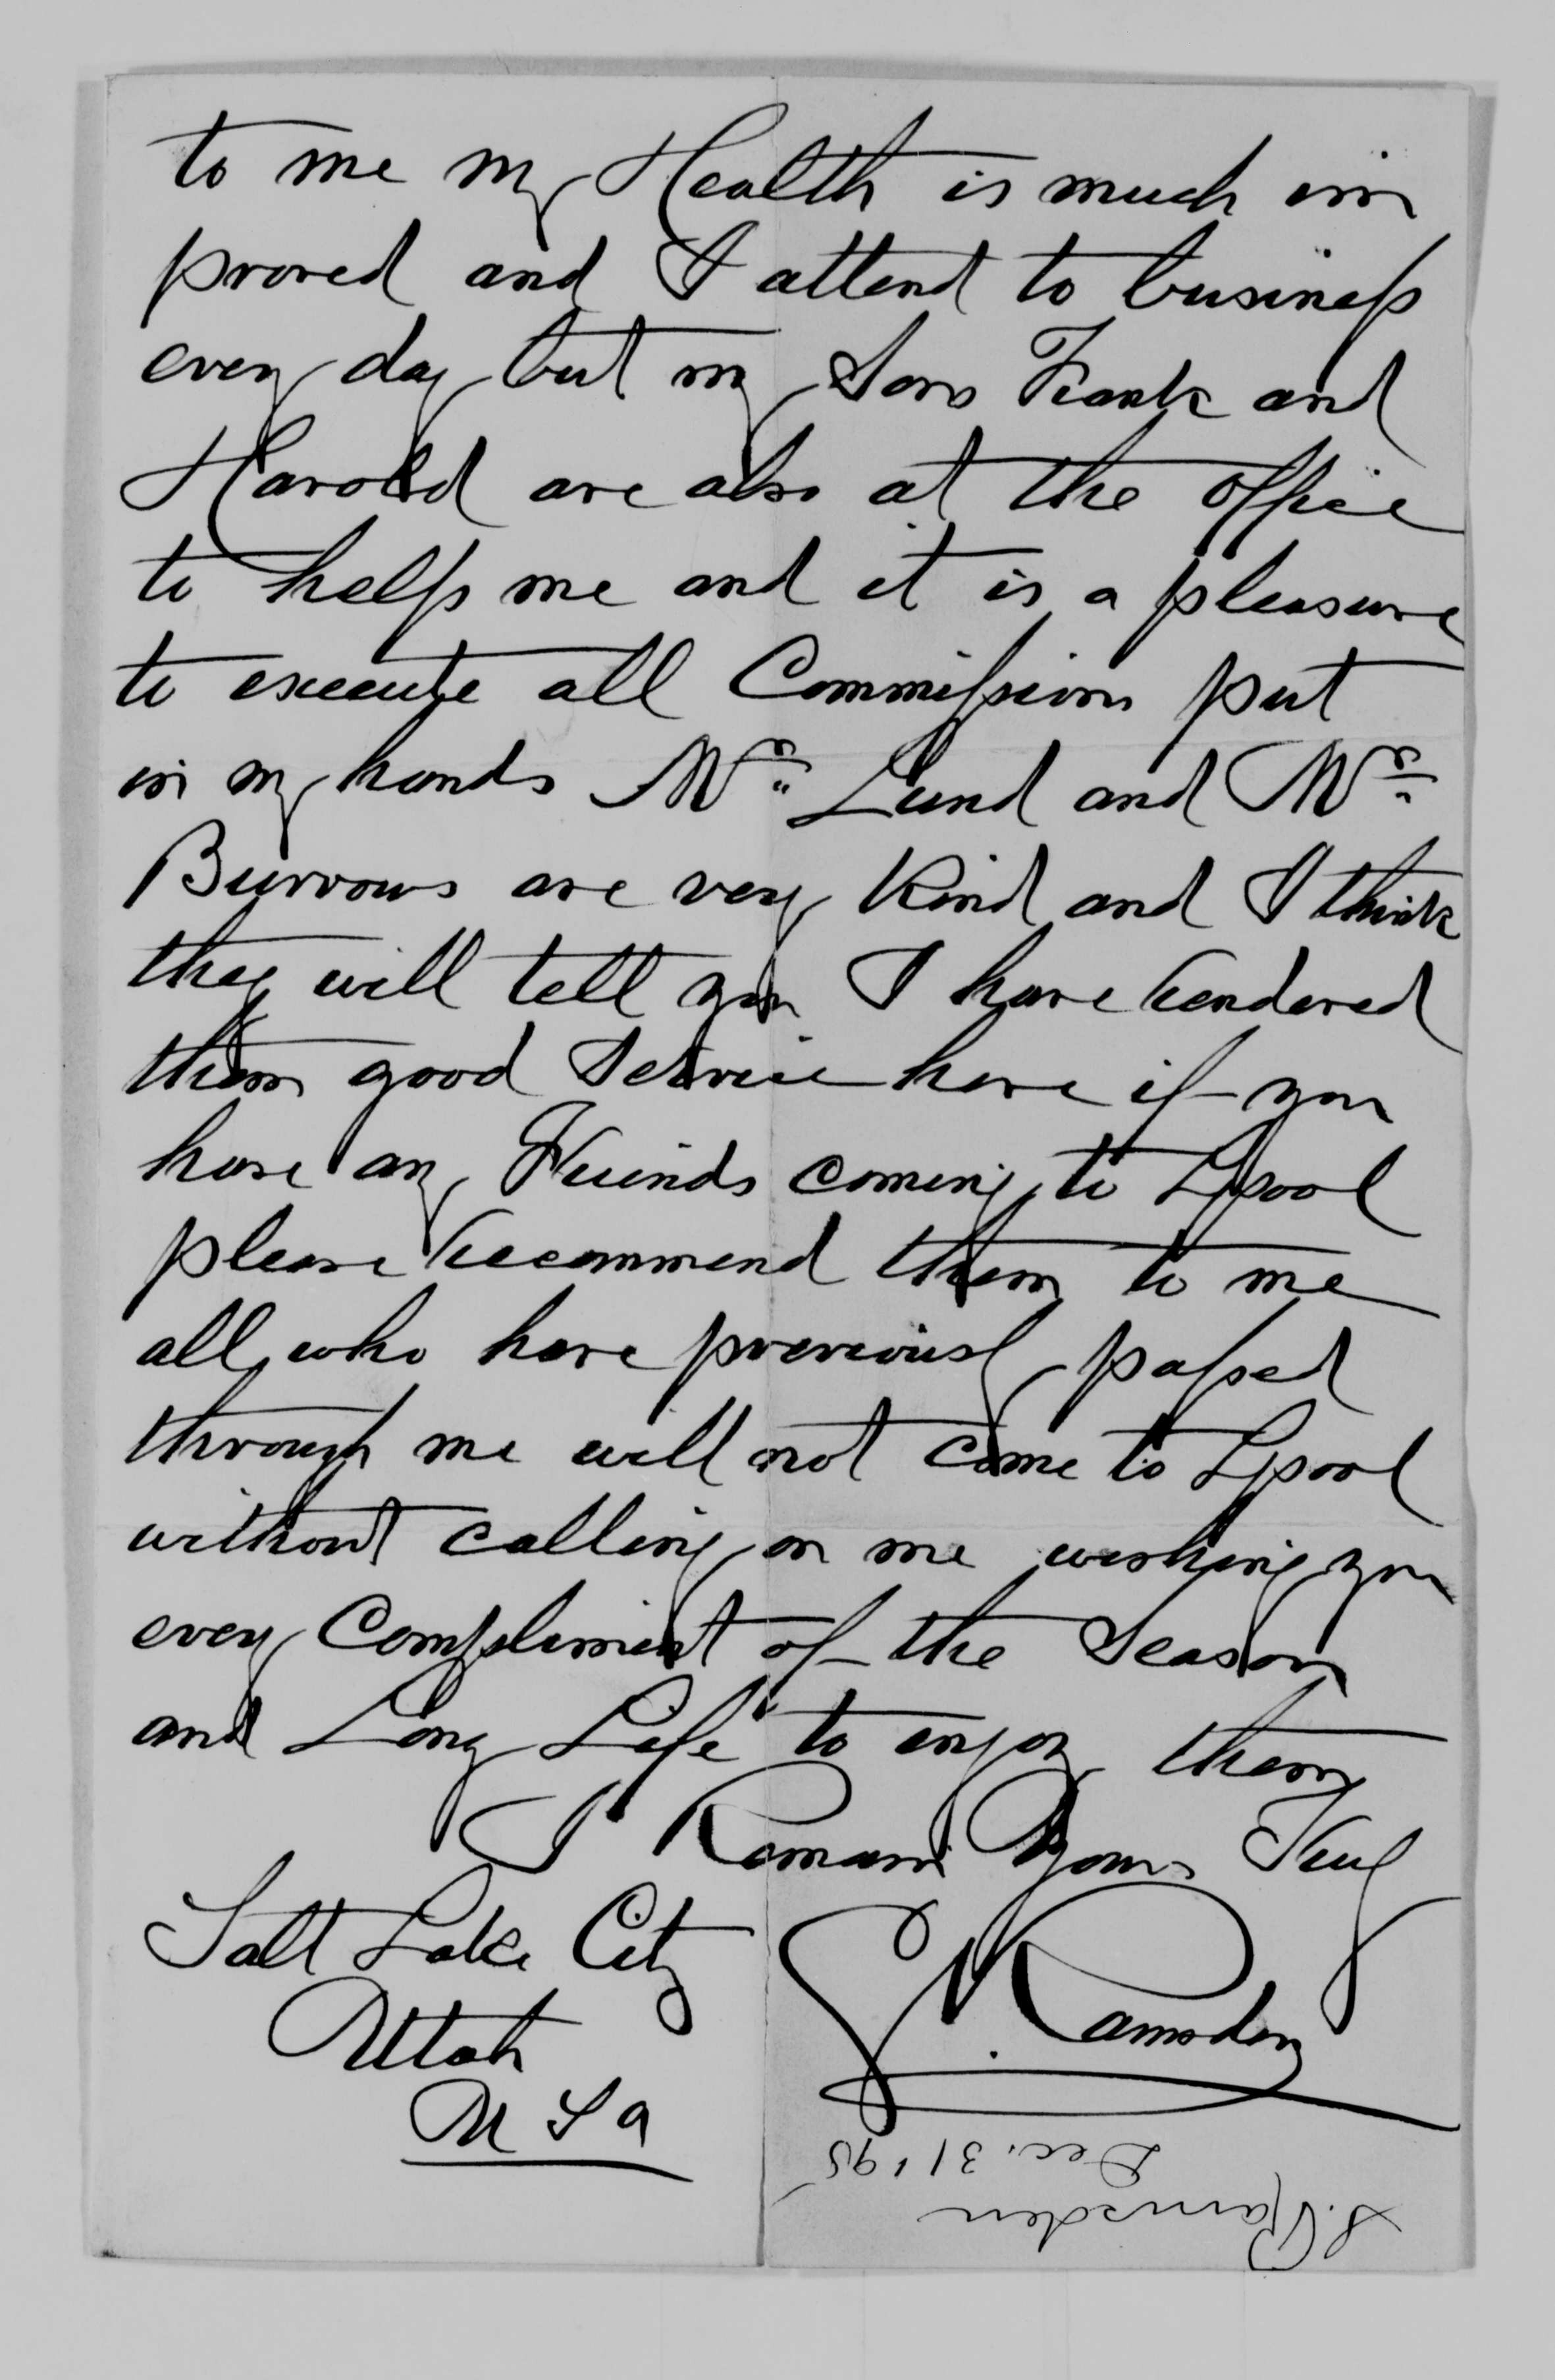 to me my Health is much im
proved and I attend to business
every day but my Sons Frank and
Harold are also at the office
to help me and it is a pleasure
to execute all Commissions put
in my hands Mr. Lund and Mr.
Burrows are very Kind and I think
they will tell you I have rendered
them good Service here if you
have any Friends coming to Lpool
please recommend them to me
all who have previously passed
through me will not come to Lpool
without calling on me wishing you
every Compliment of the Season
and Long Life to enjoy them
I Remain Yours Truly
Ramsden
Salt Lake City
Utah
U S A
S. Ramsden
Dec. 31, '95